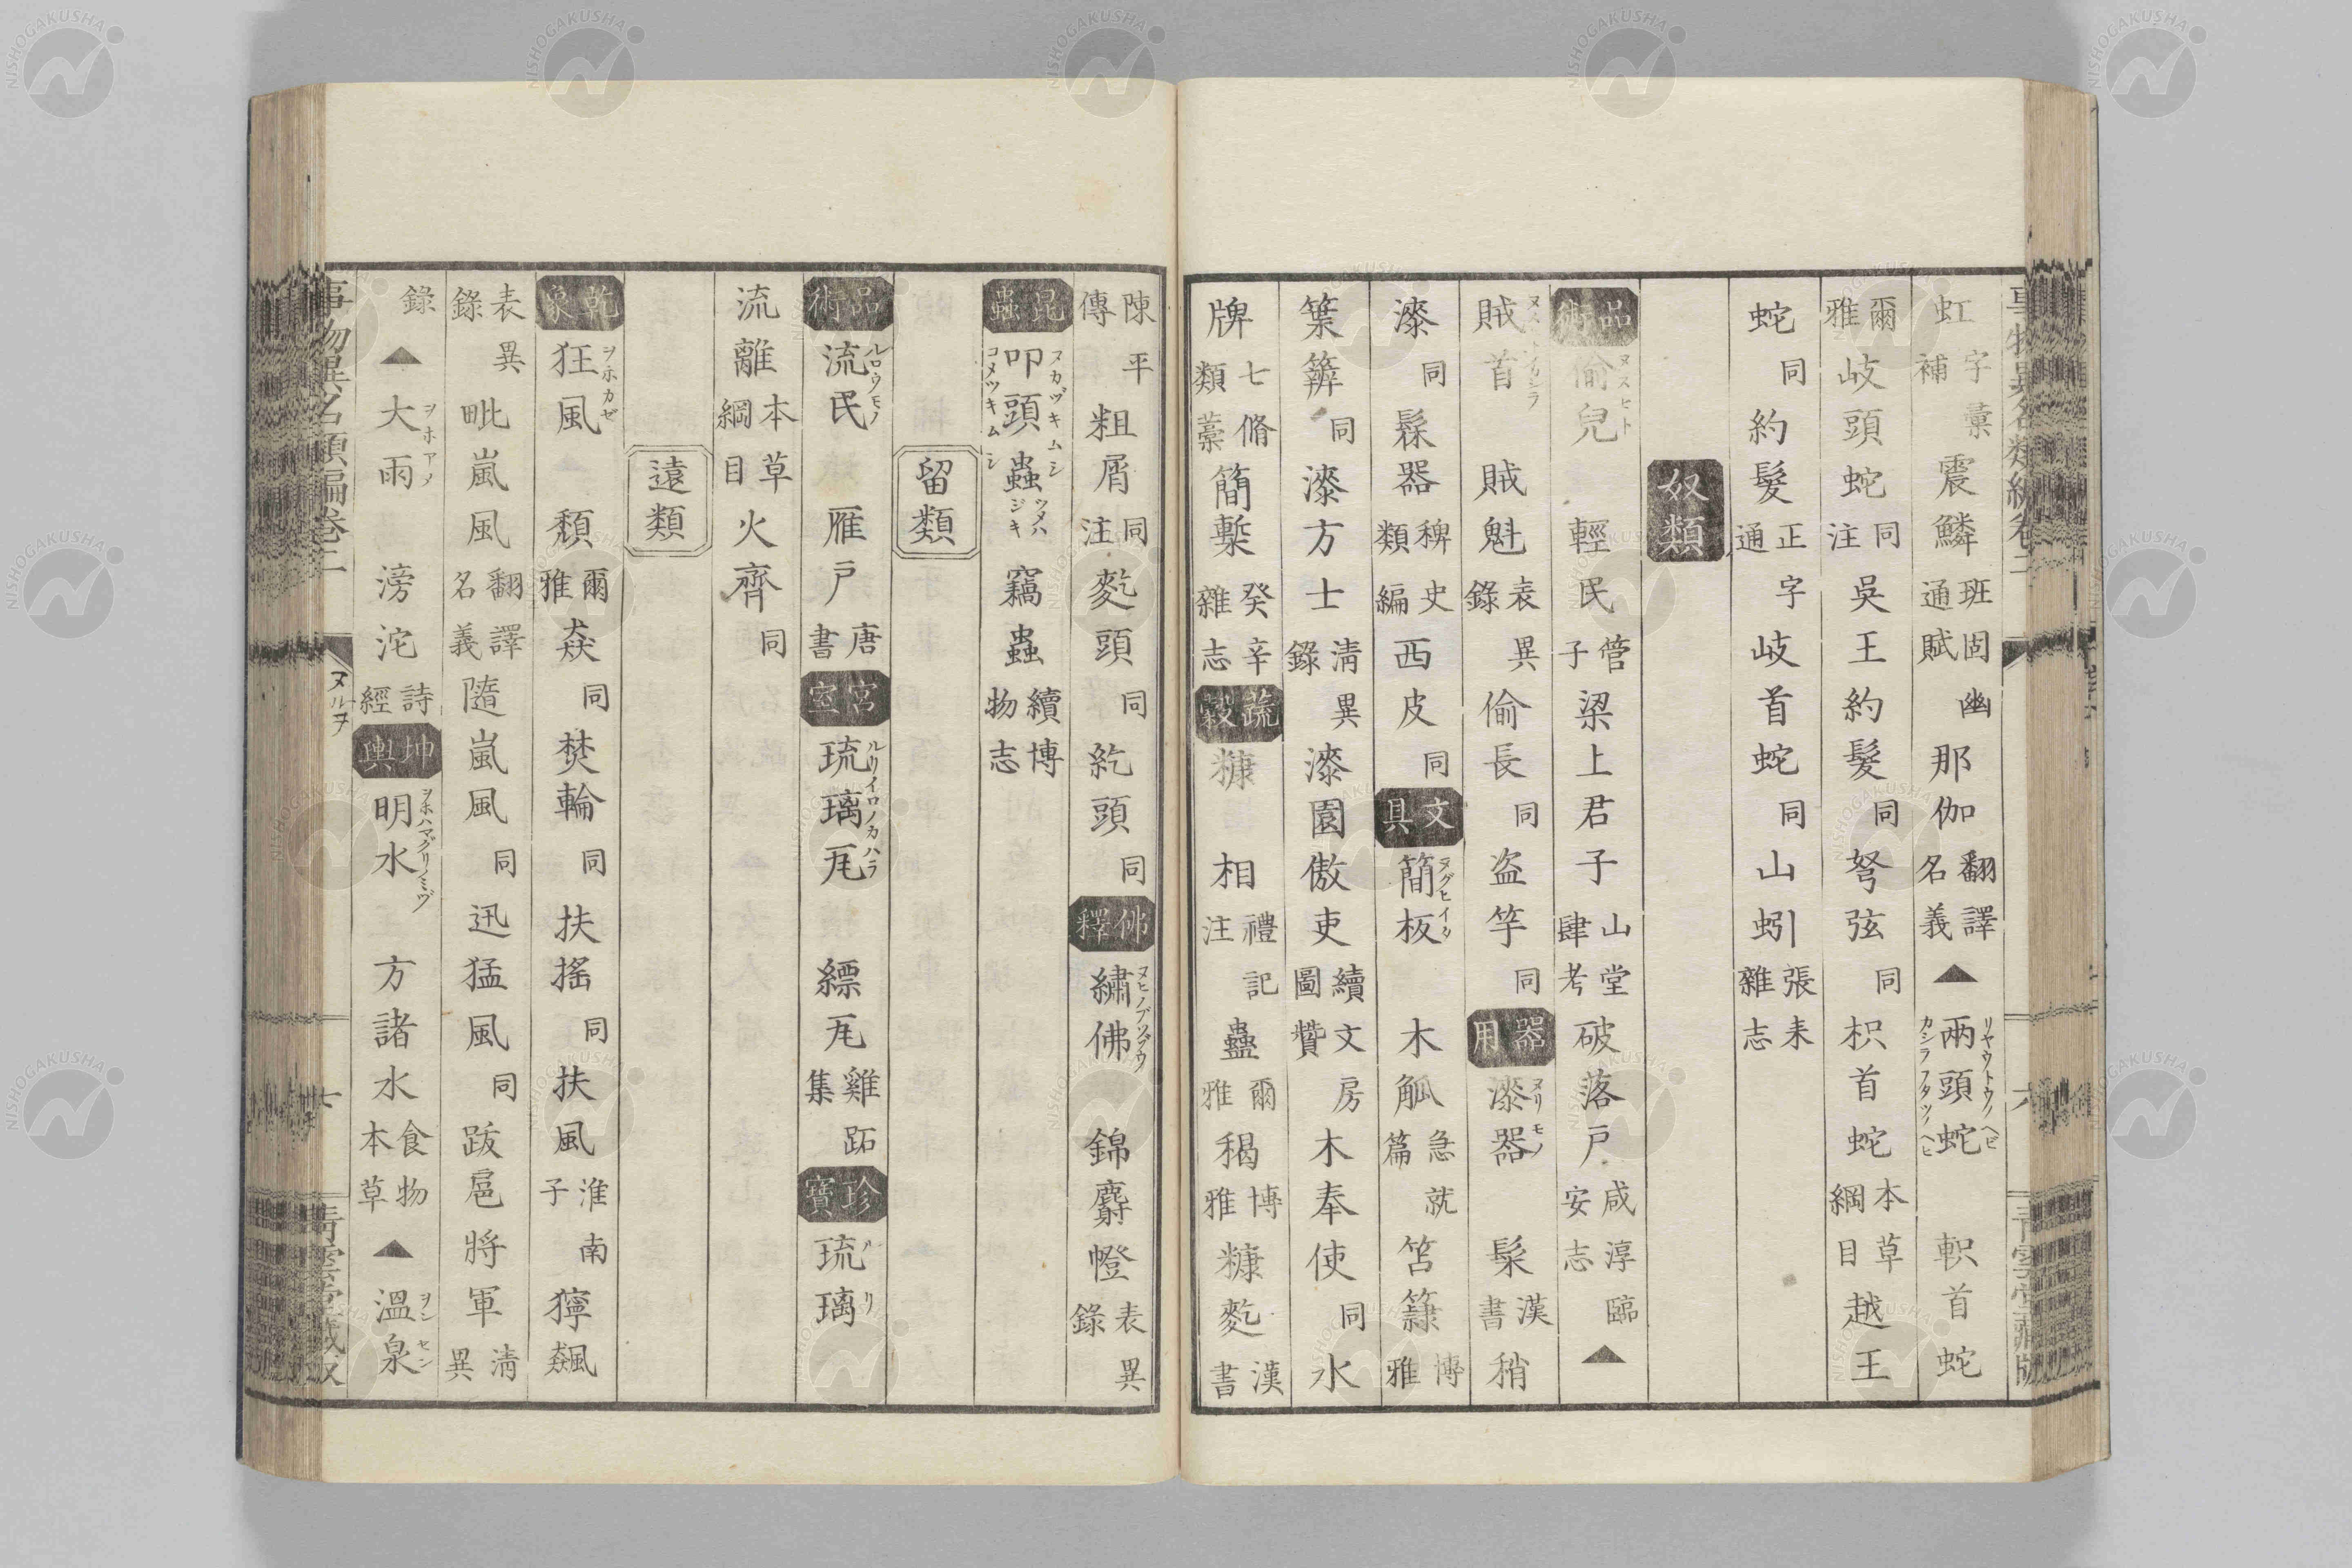 虹 字彙補 震鱗 班固幽通賦 那伽 翻譯名義 ▲兩頭蛇 リヤウトウノヘビ カシラフタツノヘヒ 軹首蛇
爾雅 岐頭蛇 同注 吳王約髮 同 弩弦 同 枳首蛇 本草綱目 越王
蛇 同 約髮 正字通 岐首蛇 同 山蚓 張耒雜志
奴類
品術 偷兒 ヌスヒト 輕民 管子 梁上君子 山堂肆考 破落戸 咸淳臨安志 ▲
賊首 賊魁 表異錄 偷長 同 盗竽 同 器用 漆器 ヌリモノ 髹 漢書 稍
漆 同 髹器 稗史類編 西皮 同 文具 簡板 ヌグヒイタ 木觚 急就篇 笘 博雅
葉 同 漆方士 清異錄 漆園傲吏 續文房圖贊 木奉使 同 水
牌 七脩類藁 簡槧 癸辛雜志 蔬穀 糠 相 禮記注 蠱 爾雅 䅥 博雅 糠麧 漢書
陳平傳 粗屑 同注 麧頭 同 紇頭 同 佛釋 繡佛 ヌヒノブツゾウ 錦麝幐 表異錄
昆蟲 叩頭蟲 ヌカヅキムシ コメツキムシ 竊蟲 續博物志
留類
品術 流民 ルロウノモノ 雁戸 唐書 宮室 琉璃瓦 ルリイロノカハラ 縹瓦 雞跖集 珍寶 琉璃 ルリ
流離 本草綱目 火齊 同
遠類
乾象 狂風 ヲホカゼ 頹 爾雅 猋 同 焚輪 同 扶搖 同 扶風 淮南子 獰飆
表異錄 毗嵐風 翻譯名義 隨嵐風 同 迅猛風 同 跋扈將軍 清異
錄 ▲大雨 ヲホアメ 滂沱 詩經 坤輿 明水 ヲホハマグリノミヅ 方諸水 食物本草 ▲溫泉 ヲンセン
事物異名類編卷二 ヌルヲ 七 青雲堂藏版